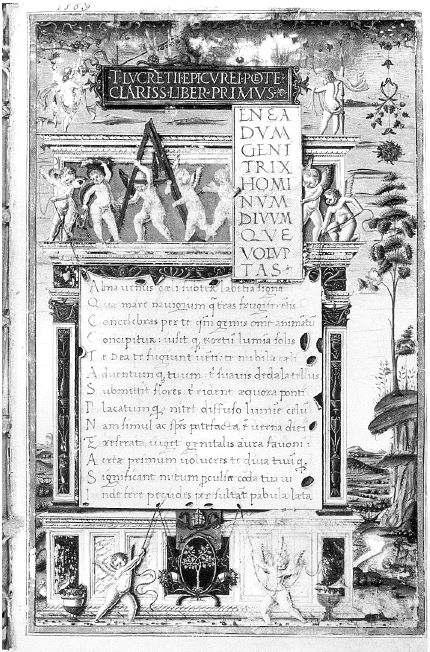 1569
T·LVCRETII·EPICVREI·POTE
CLARISS·LIBER·PRIMVS·
A
ENEA
DVM
GENI
TRIX
HOMI
NVM
DIVVM
QVE
VOLVP
TAS
Alma venus cæli subter labētia signa
Quæ mare navigerum q̃ terras frugiferētis
Concelebras per te qm̃ genus omē animātū
Concipitur: visitq. exortū lumīa solis
Te Dea te fugiunt vēti: te nubila cæli
Adventumq. tuum: t̃ suavis dædala tellus
Submittit flores: t̃ rident æquora ponti
Placatumq. nitet diffuso lumīe cælū
Nam simul ac spēs patefacta ē verna diei
Exreserata viget genitalis aura favoni
Aeriæ primum volucres te diva tuūq.
Significant initum pculsæ corda tua vi
Inde feræ pecudes persultāt pabula læta